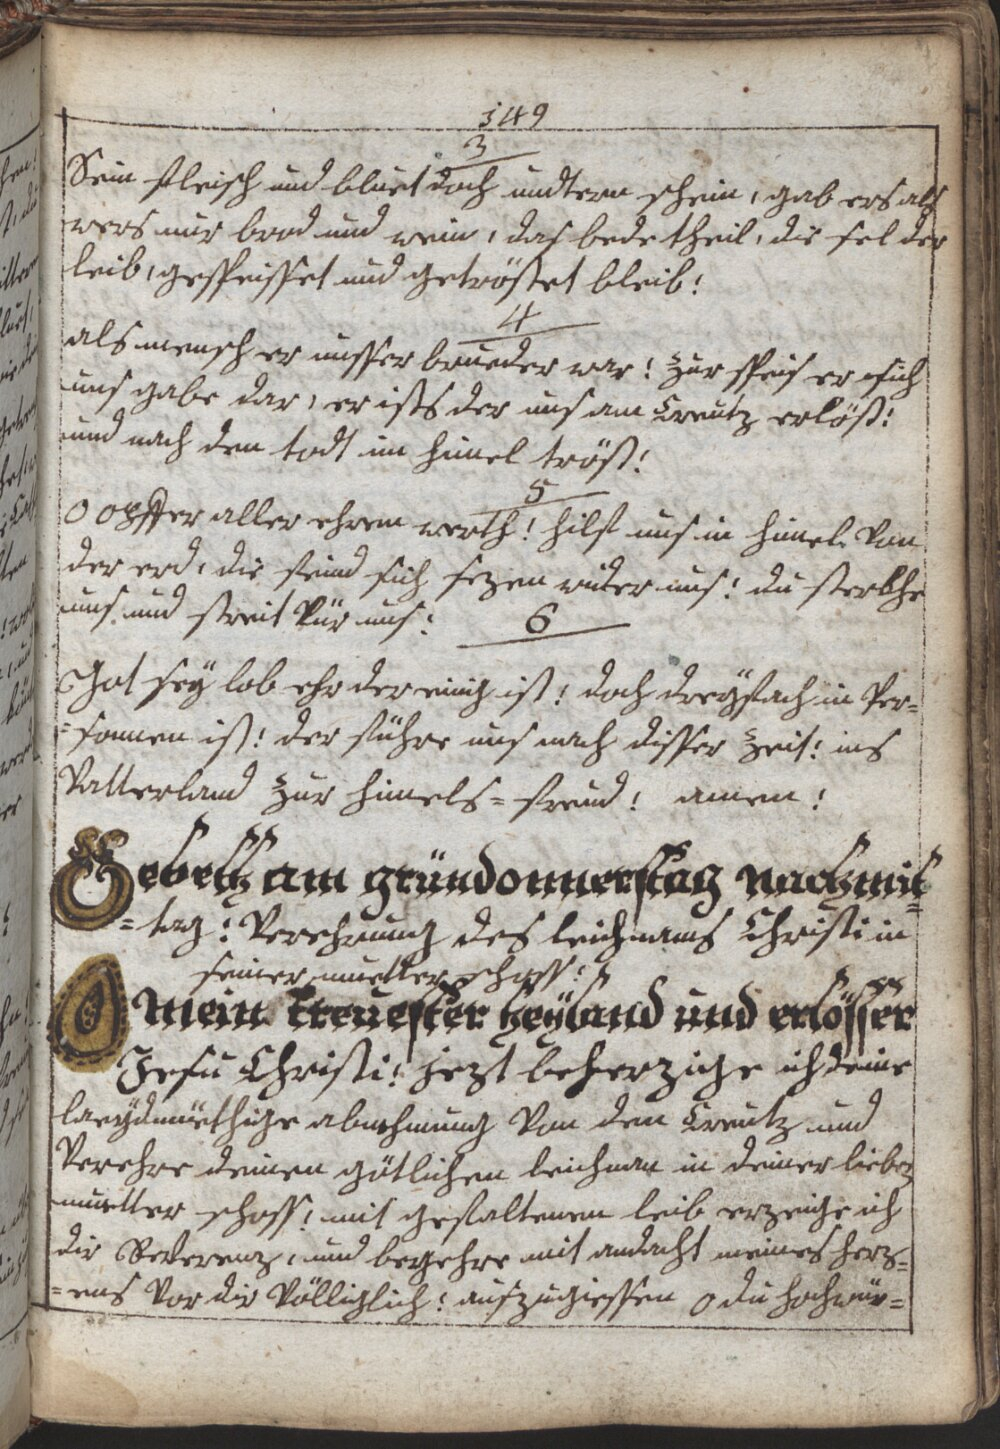 349
3
Sein fleisch und bluet doch undtern schein, gab ers als
wers nur brod und wein, das bede theil, die sel der
leib, gespeisset und getröstet bleib!
4
als mensch er unsser brueder war! zur speis er sich
uns gabe dar, er ists der uns am Creutz erlöst!
und nach den todt im himel tröst!
5
O opffer aller ehren werth! hilf uns in himel von
der erd, die feind sich sezen wider uns! du sterkhe
uns und streit vür uns!
6
Got sey lob ehr der einig ist! doch dreyfach in Per=
=sonnen ist! der führe uns nach disser zeit! ins
Vatterland zur himels=freud! amen!
Gebett am gründonnerstag nachmit
=tag: Verehrung des leichnams Christi in
seiner muetter schoss:
O mein treuester heyland und erlösser
Jesu Christi! jezt beherzige ich deine
laeydmüethige abnehmung von den Creutz und
Verehre deinen götlichen leichnam in deiner lieben
muetter schoss! mit gefaltenen leib erzeige ich
dir Reverenz, und begehre mit andacht meines herz=
=ens vor dir völliglich! auszugiessen o du hochwür=